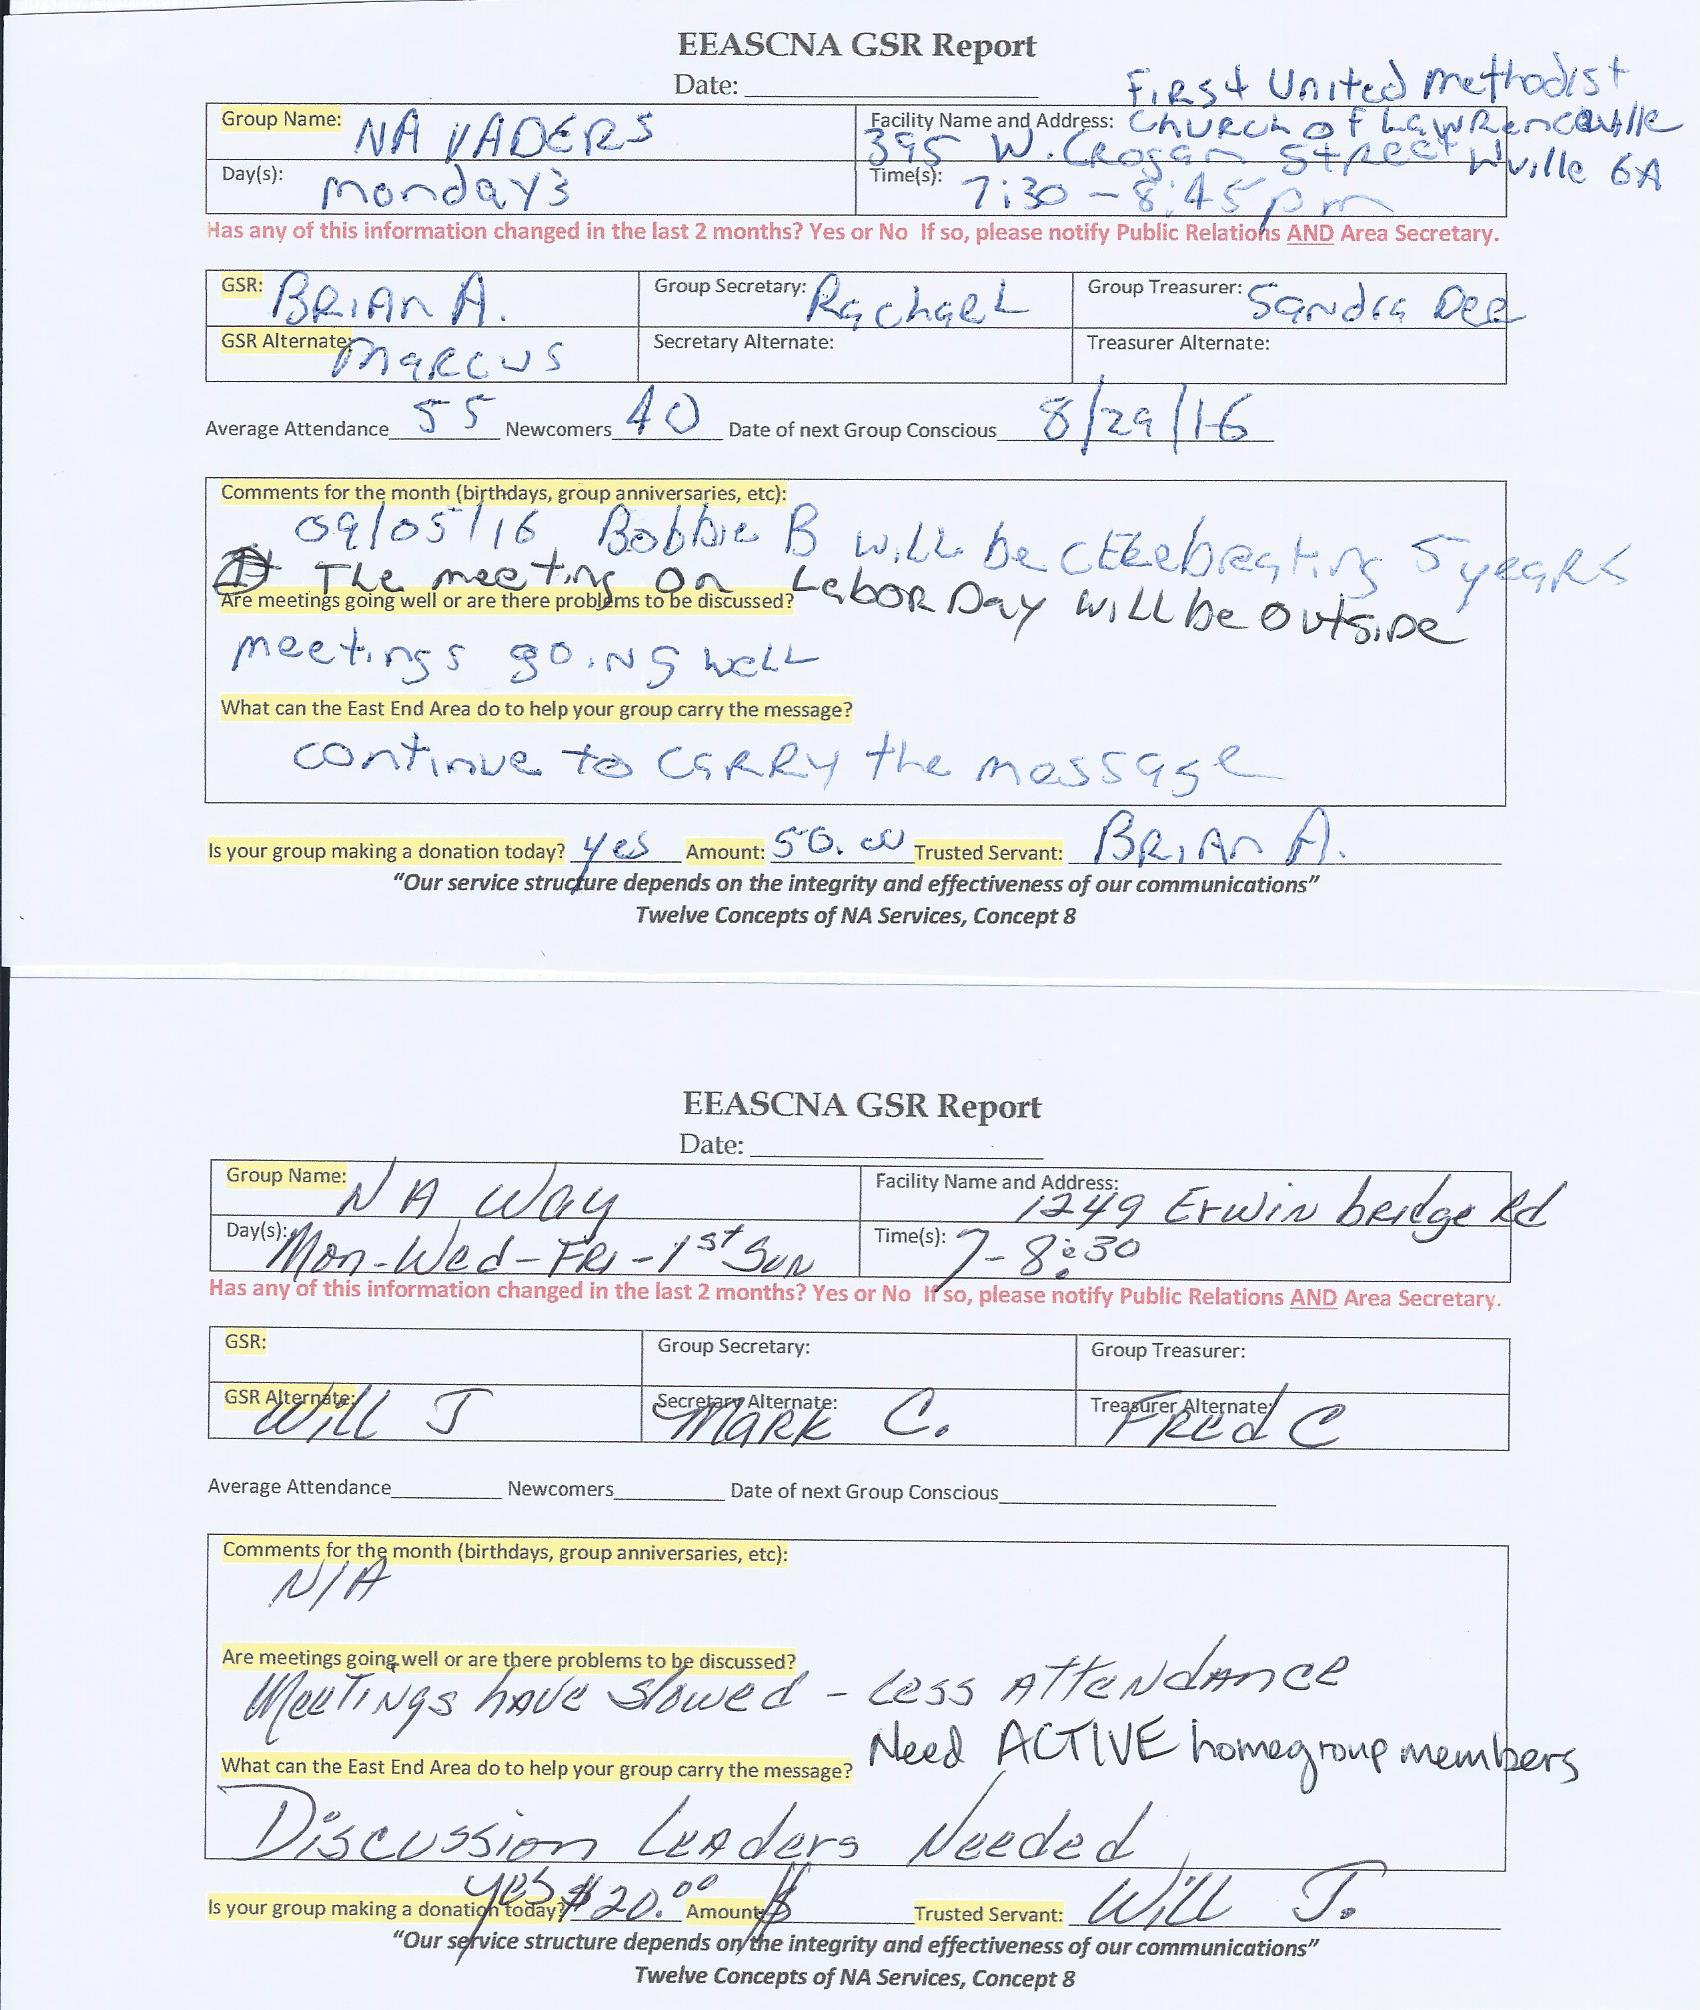 EEASCNA GSR Report
Date:
First United Methodist
Group Name: NA VADERS
Facility Name and Address: Church of Lawrenceville
395 W. Crogan Street Wville GA
Day(s): Mondays
Time(s): 7:30 - 8:45 pm
Has any of this information changed in the last 2 months? Yes or No If so, please notify Public Relations AND Area Secretary.
GSR: Brian A.
Group Secretary: Rachael
Group Treasurer: Sandra Dee
GSR Alternate: Marcus
Secretary Alternate:
Treasurer Alternate:
Average Attendance 55 Newcomers 40 Date of next Group Conscious 8/29/16
Comments for the month (birthdays, group anniversaries, etc):
09/05/16 Bobbie B will be celebrating 5 years
The meeting on Labor Day will be outside
Are meetings going well or are there problems to be discussed?
meetings going well
What can the East End Area do to help your group carry the message?
continue to carry the message
Is your group making a donation today? yes Amount: 50.00 Trusted Servant: Brian A.
“Our service structure depends on the integrity and effectiveness of our communications”
Twelve Concepts of NA Services, Concept 8
EEASCNA GSR Report
Date:
Group Name: NA Way
Facility Name and Address:
1249 Erwin bridge Rd
Day(s): Mon-Wed-Fri-1st Sun
Time(s): 7-8:30
Has any of this information changed in the last 2 months? Yes or No If so, please notify Public Relations AND Area Secretary.
GSR:
Group Secretary:
Group Treasurer:
GSR Alternate: Will J
Secretary Alternate: Mark C.
Treasurer Alternate: Fred C
Average Attendance Newcomers Date of next Group Conscious
Comments for the month (birthdays, group anniversaries, etc):
N/A
Are meetings going well or are there problems to be discussed?
Meetings have slowed - Less Attendance
Need ACTIVE homegroup members
What can the East End Area do to help your group carry the message?
Discussion Leaders Needed
Is your group making a donation today? yes $20.00 Amount: $ Trusted Servant: Will J.
“Our service structure depends on the integrity and effectiveness of our communications”
Twelve Concepts of NA Services, Concept 8